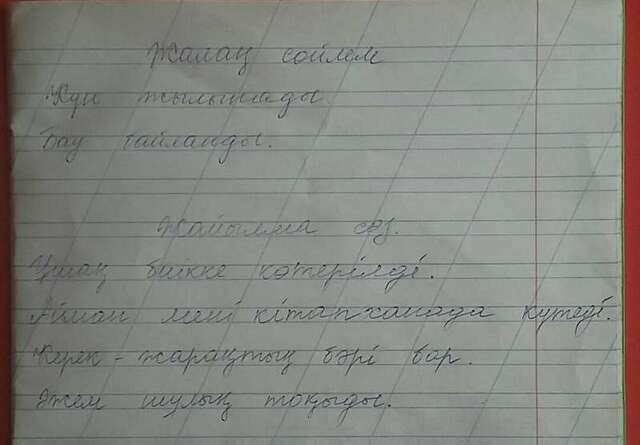 Жалаң сөйлем
Күн жылынады
Бау байланды.
Жайылма сөз.
Ұшақ биікке көтерілді.
Айман мені кітапханада күтеді.
Керек-жарақтың бәрі бар.
Әжем шұлық тоқыды.